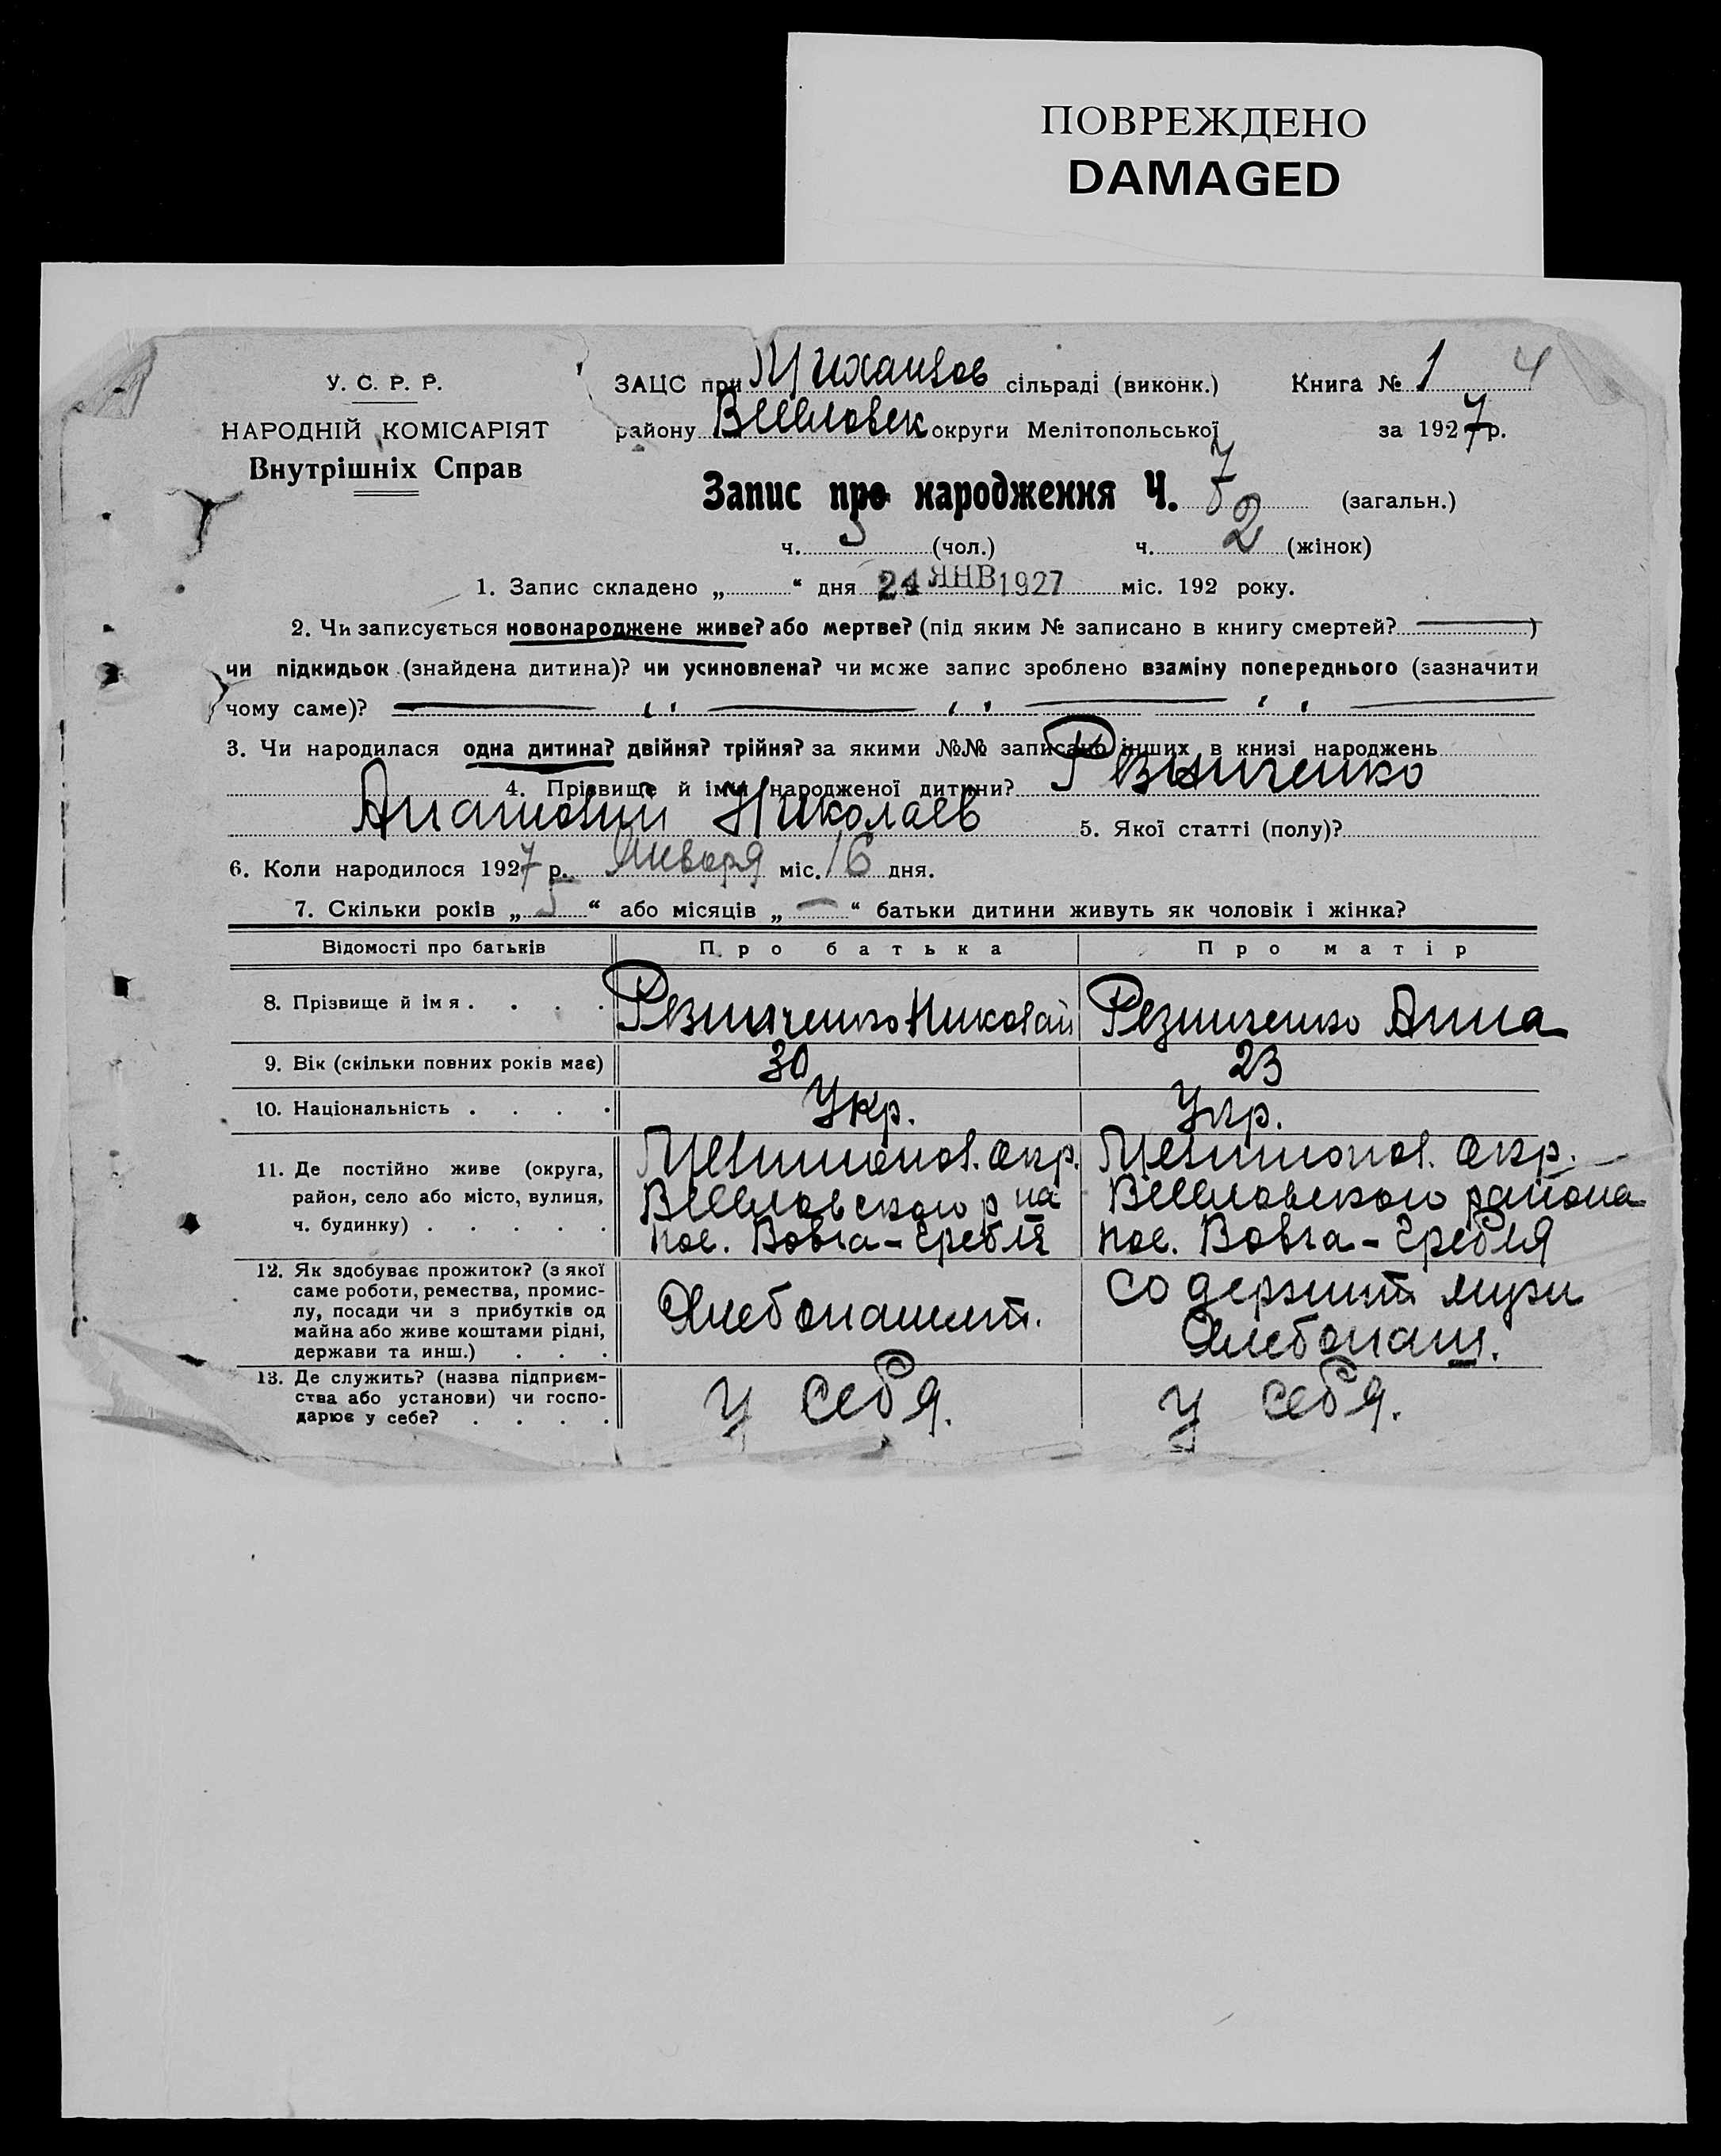 ПОВРЕЖДЕНО
DAMAGED
У. С. Р. Р.
НАРОДНІЙ КОМІСАРІЯТ
Внутрішніх Справ
ЗАЦС при Михайлов сільраді (виконк.) Книга № 1 4
району Веселовск округи Мелітопольської за 1927 р.
Запис про народження Ч. 7 (загальн.)
ч. 5 (чол.) ч. 2 (жінок)
1. Запис складено „ “ дня 24 ЯНВ 1927 міс. 192 року.
2. Чи записується новонароджене живе? або мертве? (під яким № записано в книгу смертей? )
чи підкидьок (знайдена дитина)? чи усиновлена? чи може запис зроблено взаміну попереднього (зазначити
чому саме)?
3. Чи народилася одна дитина? двійня? трійня? за якими №№ записано інших в книзі народжень
4. Прізвище й імя народженої дитини? Резниченко
Анатолий Николаев 5. Якої статті (полу)?
6. Коли народилося 1927 р. Января міс. 16 дня.
7. Скільки років „ 5 “ або місяців „ — “ батьки дитини живуть як чоловік і жінка?
Відомості про батьків Про батька Про матір
8. Прізвище й імя . . . . Резниченко Николай Резниченко Анна
9. Вік (скільки повних років має) 30 23
10. Національність . . . . Укр. Укр.
11. Де постійно живе (округа, район, село або місто, вулиця, ч. будинку) . . . . .
Мелитопол. окр.
Веселовского р на
пос. Вовча-Гребля
Мелитопол. окр.
Веселовского района
пос. Вовча-Гребля
12. Як здобуває прожиток? (з якої
саме роботи, ремества, промис-
лу, посади чи з прибутків од
майна або живе коштами рідні,
держави та инш.) . . .
Хлебопашест.
содержит мужи
Хлебопаш.
13. Де служить? (назва підприєм-
ства або установи) чи госпо-
дарює у себе? . . . .
у себя.
у себя.